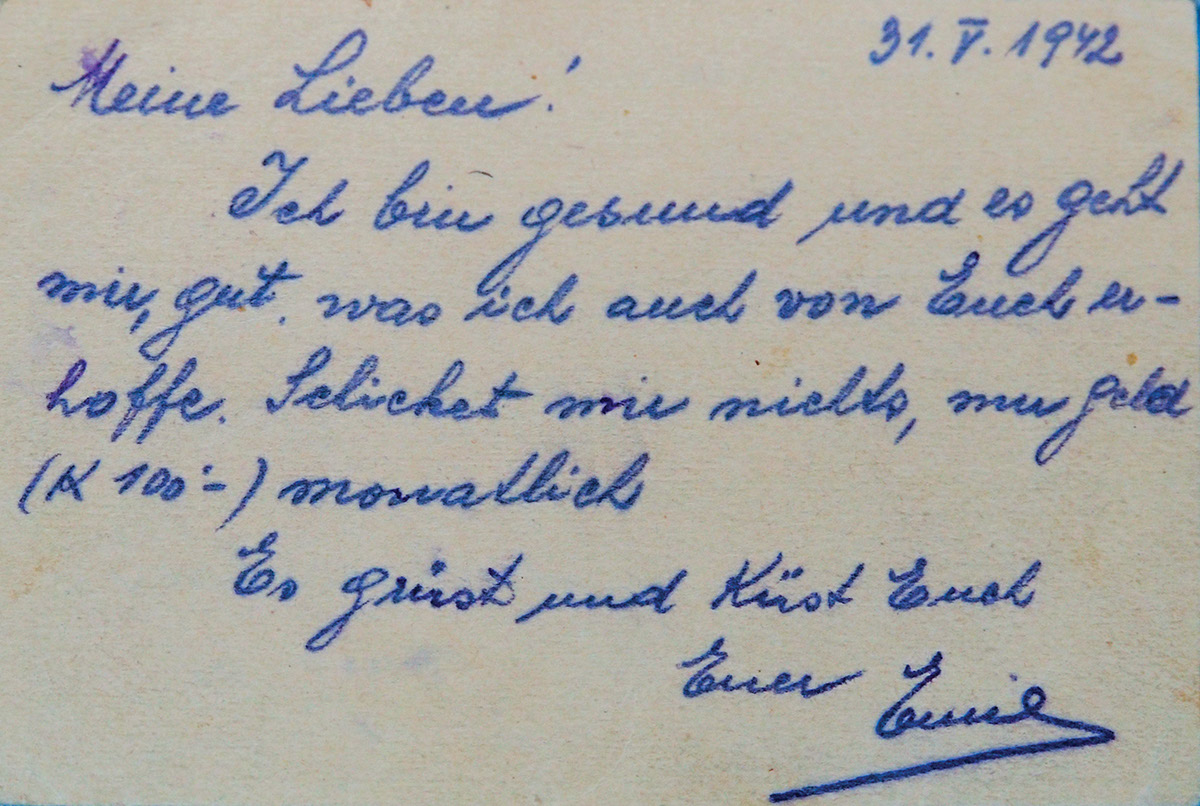 31. V. 1942
Meine Lieben!
Ich bin gesund und es geht
mir, gut. was ich auch von Euch er-
hoffe. Schicket mir nichts, nur geld
(K 100·-) monatlich
Es grüst und Küst Euch
Euer Emil